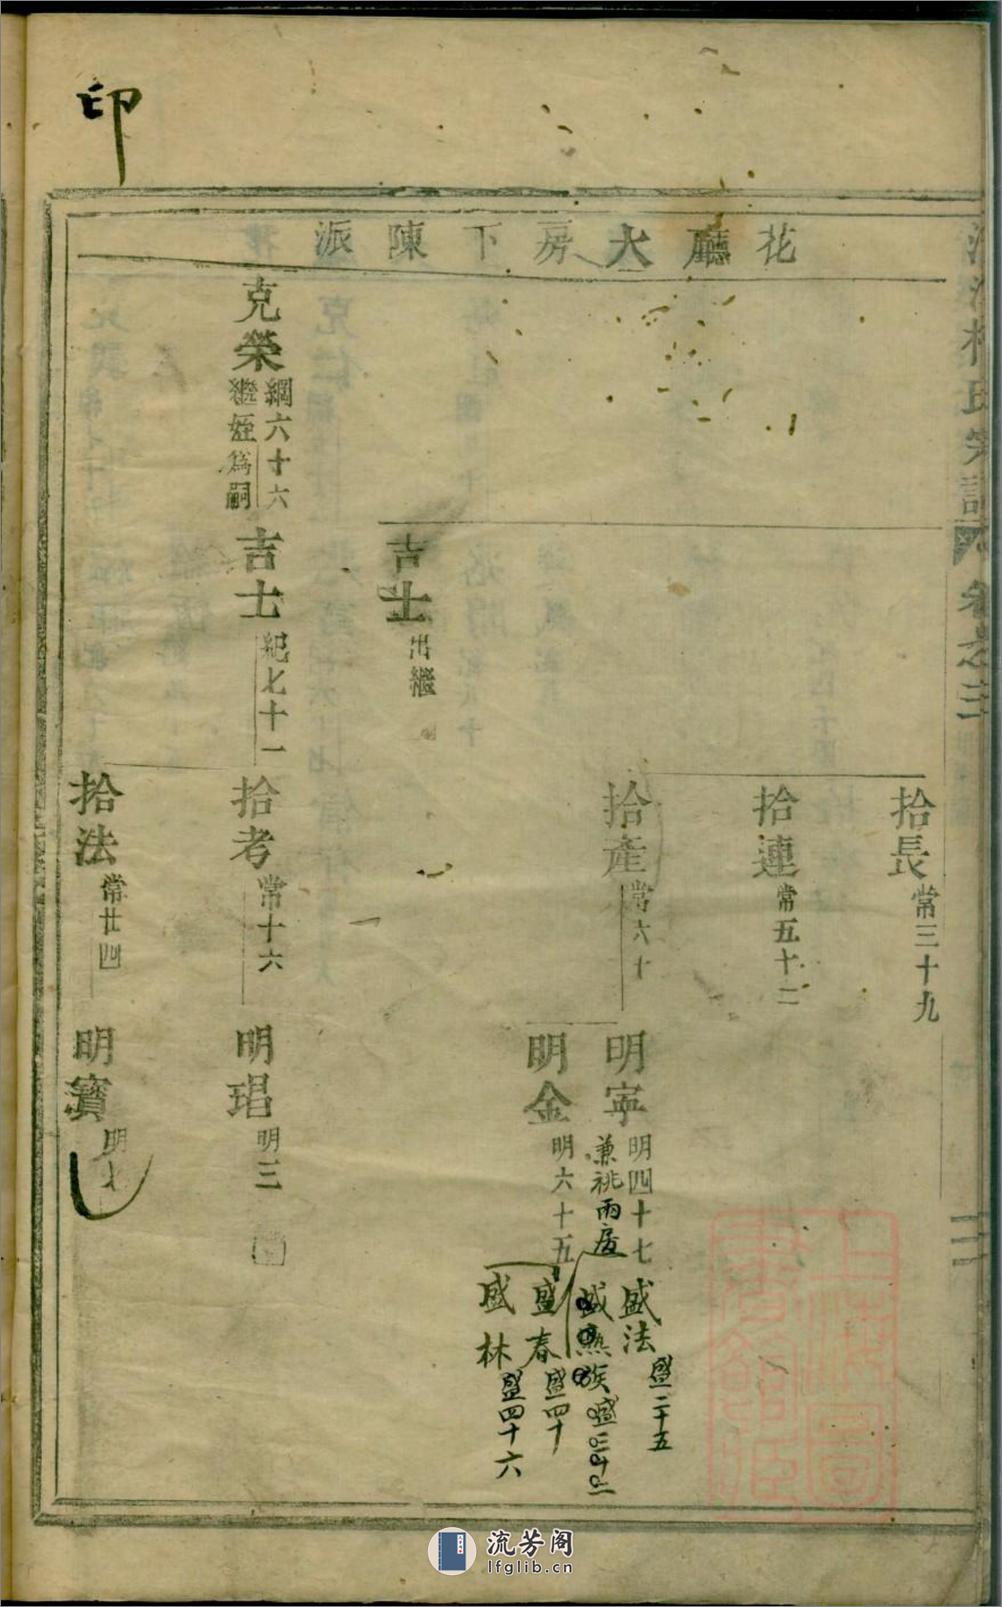 印
花廳大房下陳派
拾長常三十九
拾連常五十二
拾產常六十
明寧明四十七
兼祧兩房
盛法盛二十五
明金明六十五
盛春盛四十
盛林盛四十六
吉士出繼
克榮綱六十六
繼姪為嗣
吉士紀七十一
拾考常十六
明琩明三
拾法常廿四
明寶明七
氏宗譜
卷之三
上海圖書館藏
流芳阁
lfglib.cn